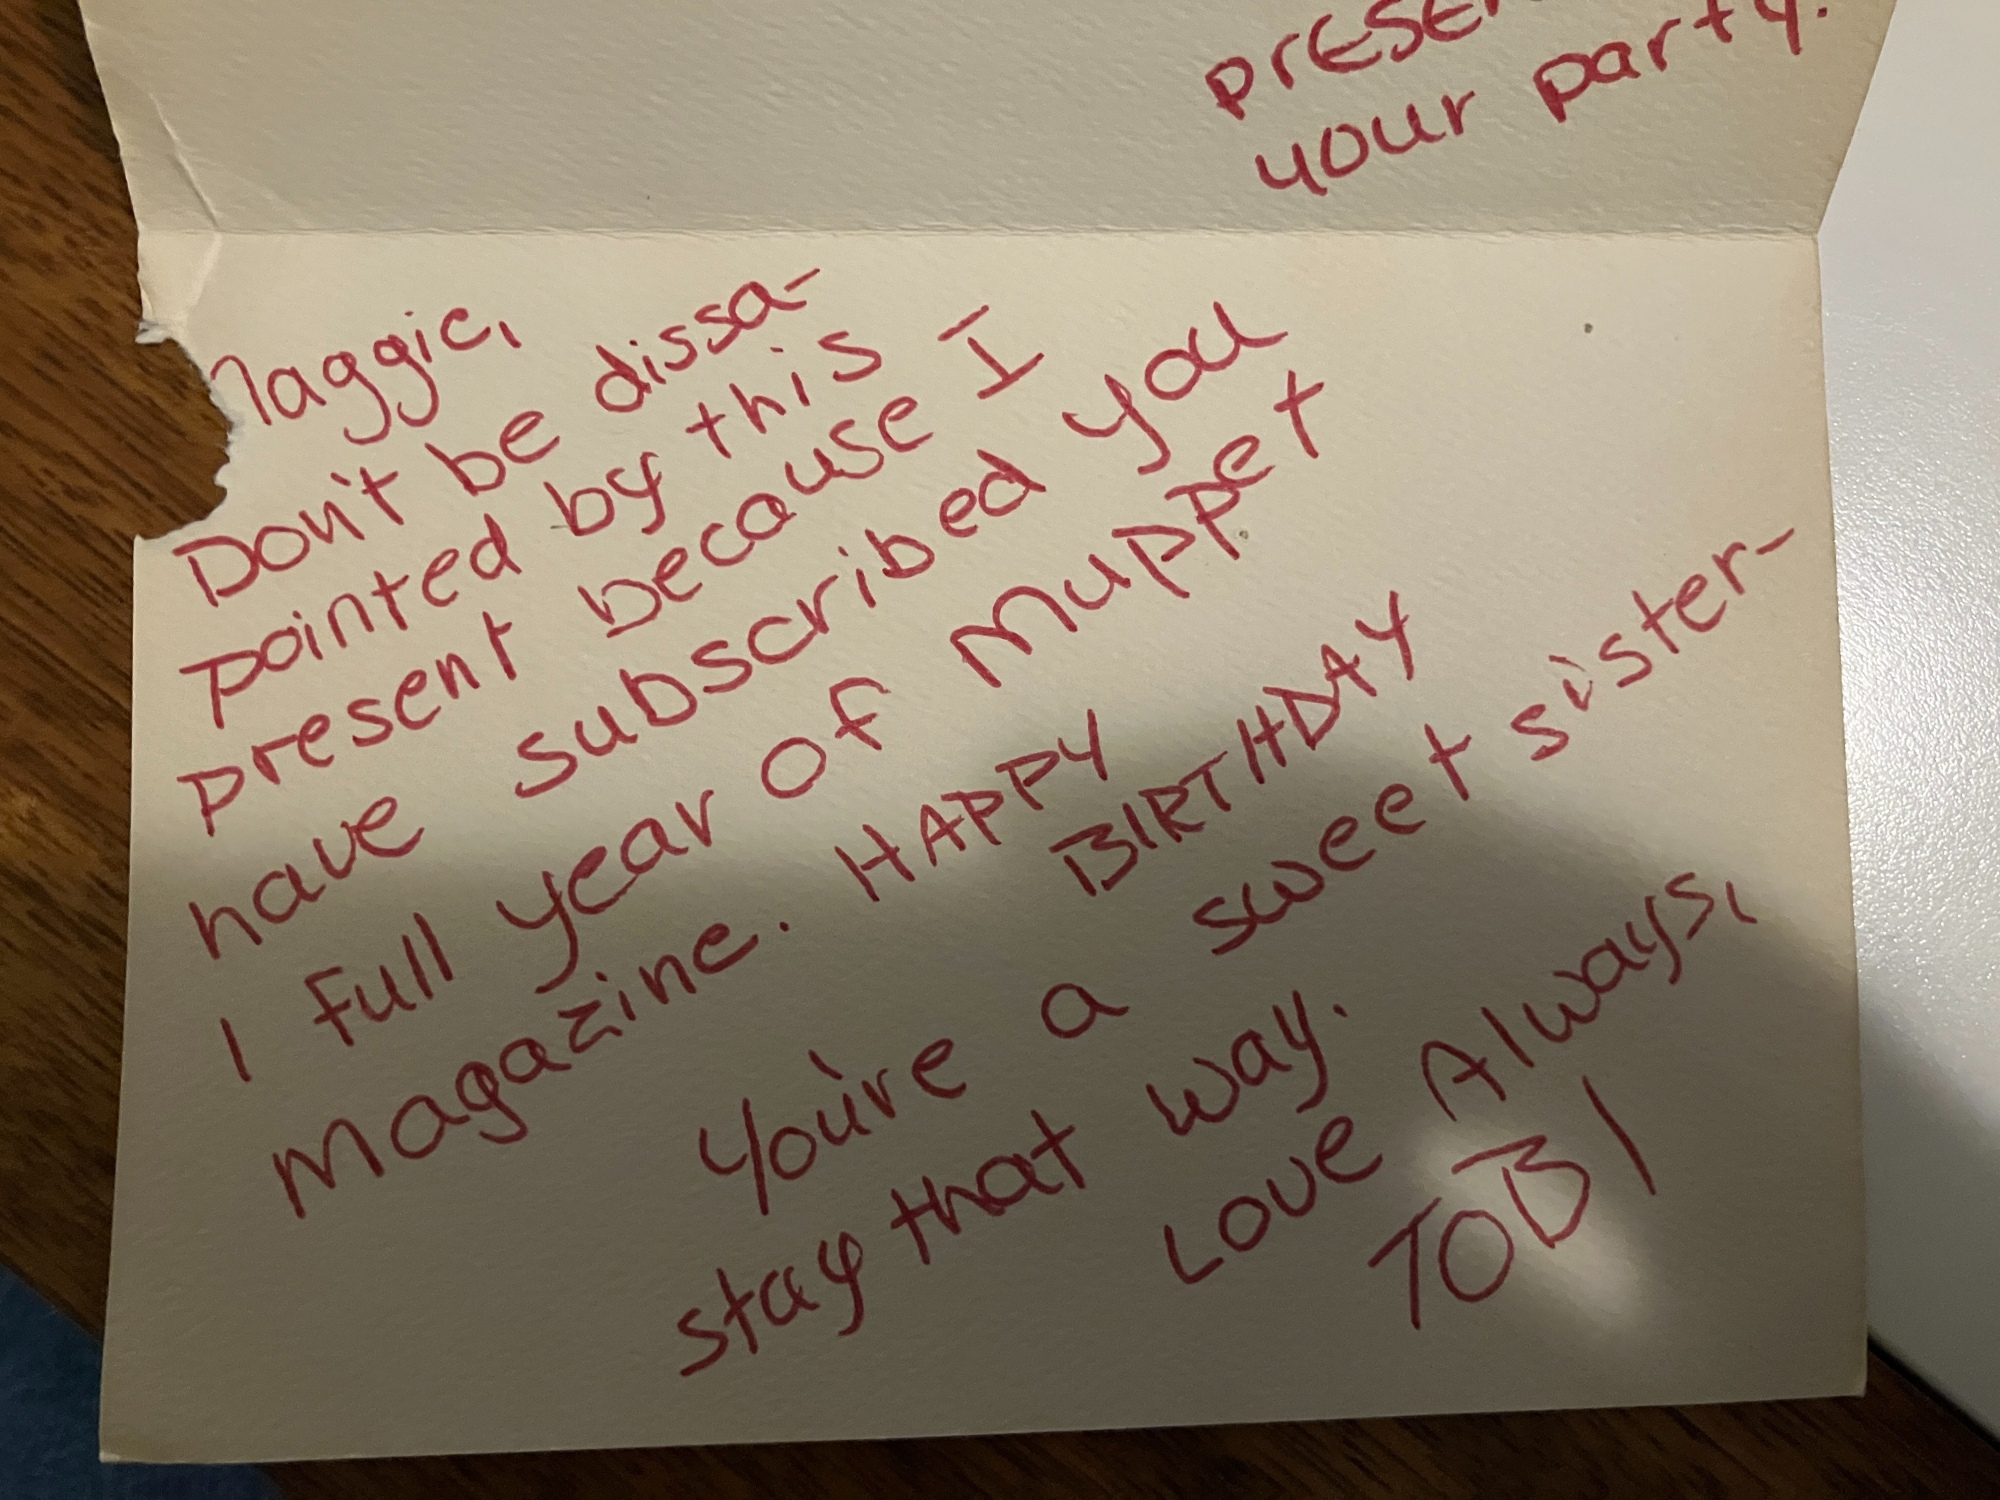 your party.
Maggie,
Don't be dissa-
pointed by this
present because I
have subscribed you
1 full year of Muppet
Magazine. HAPPY
BIRTHDAY
You're a sweet sister-
stay that way.
Love Always,
TOBI